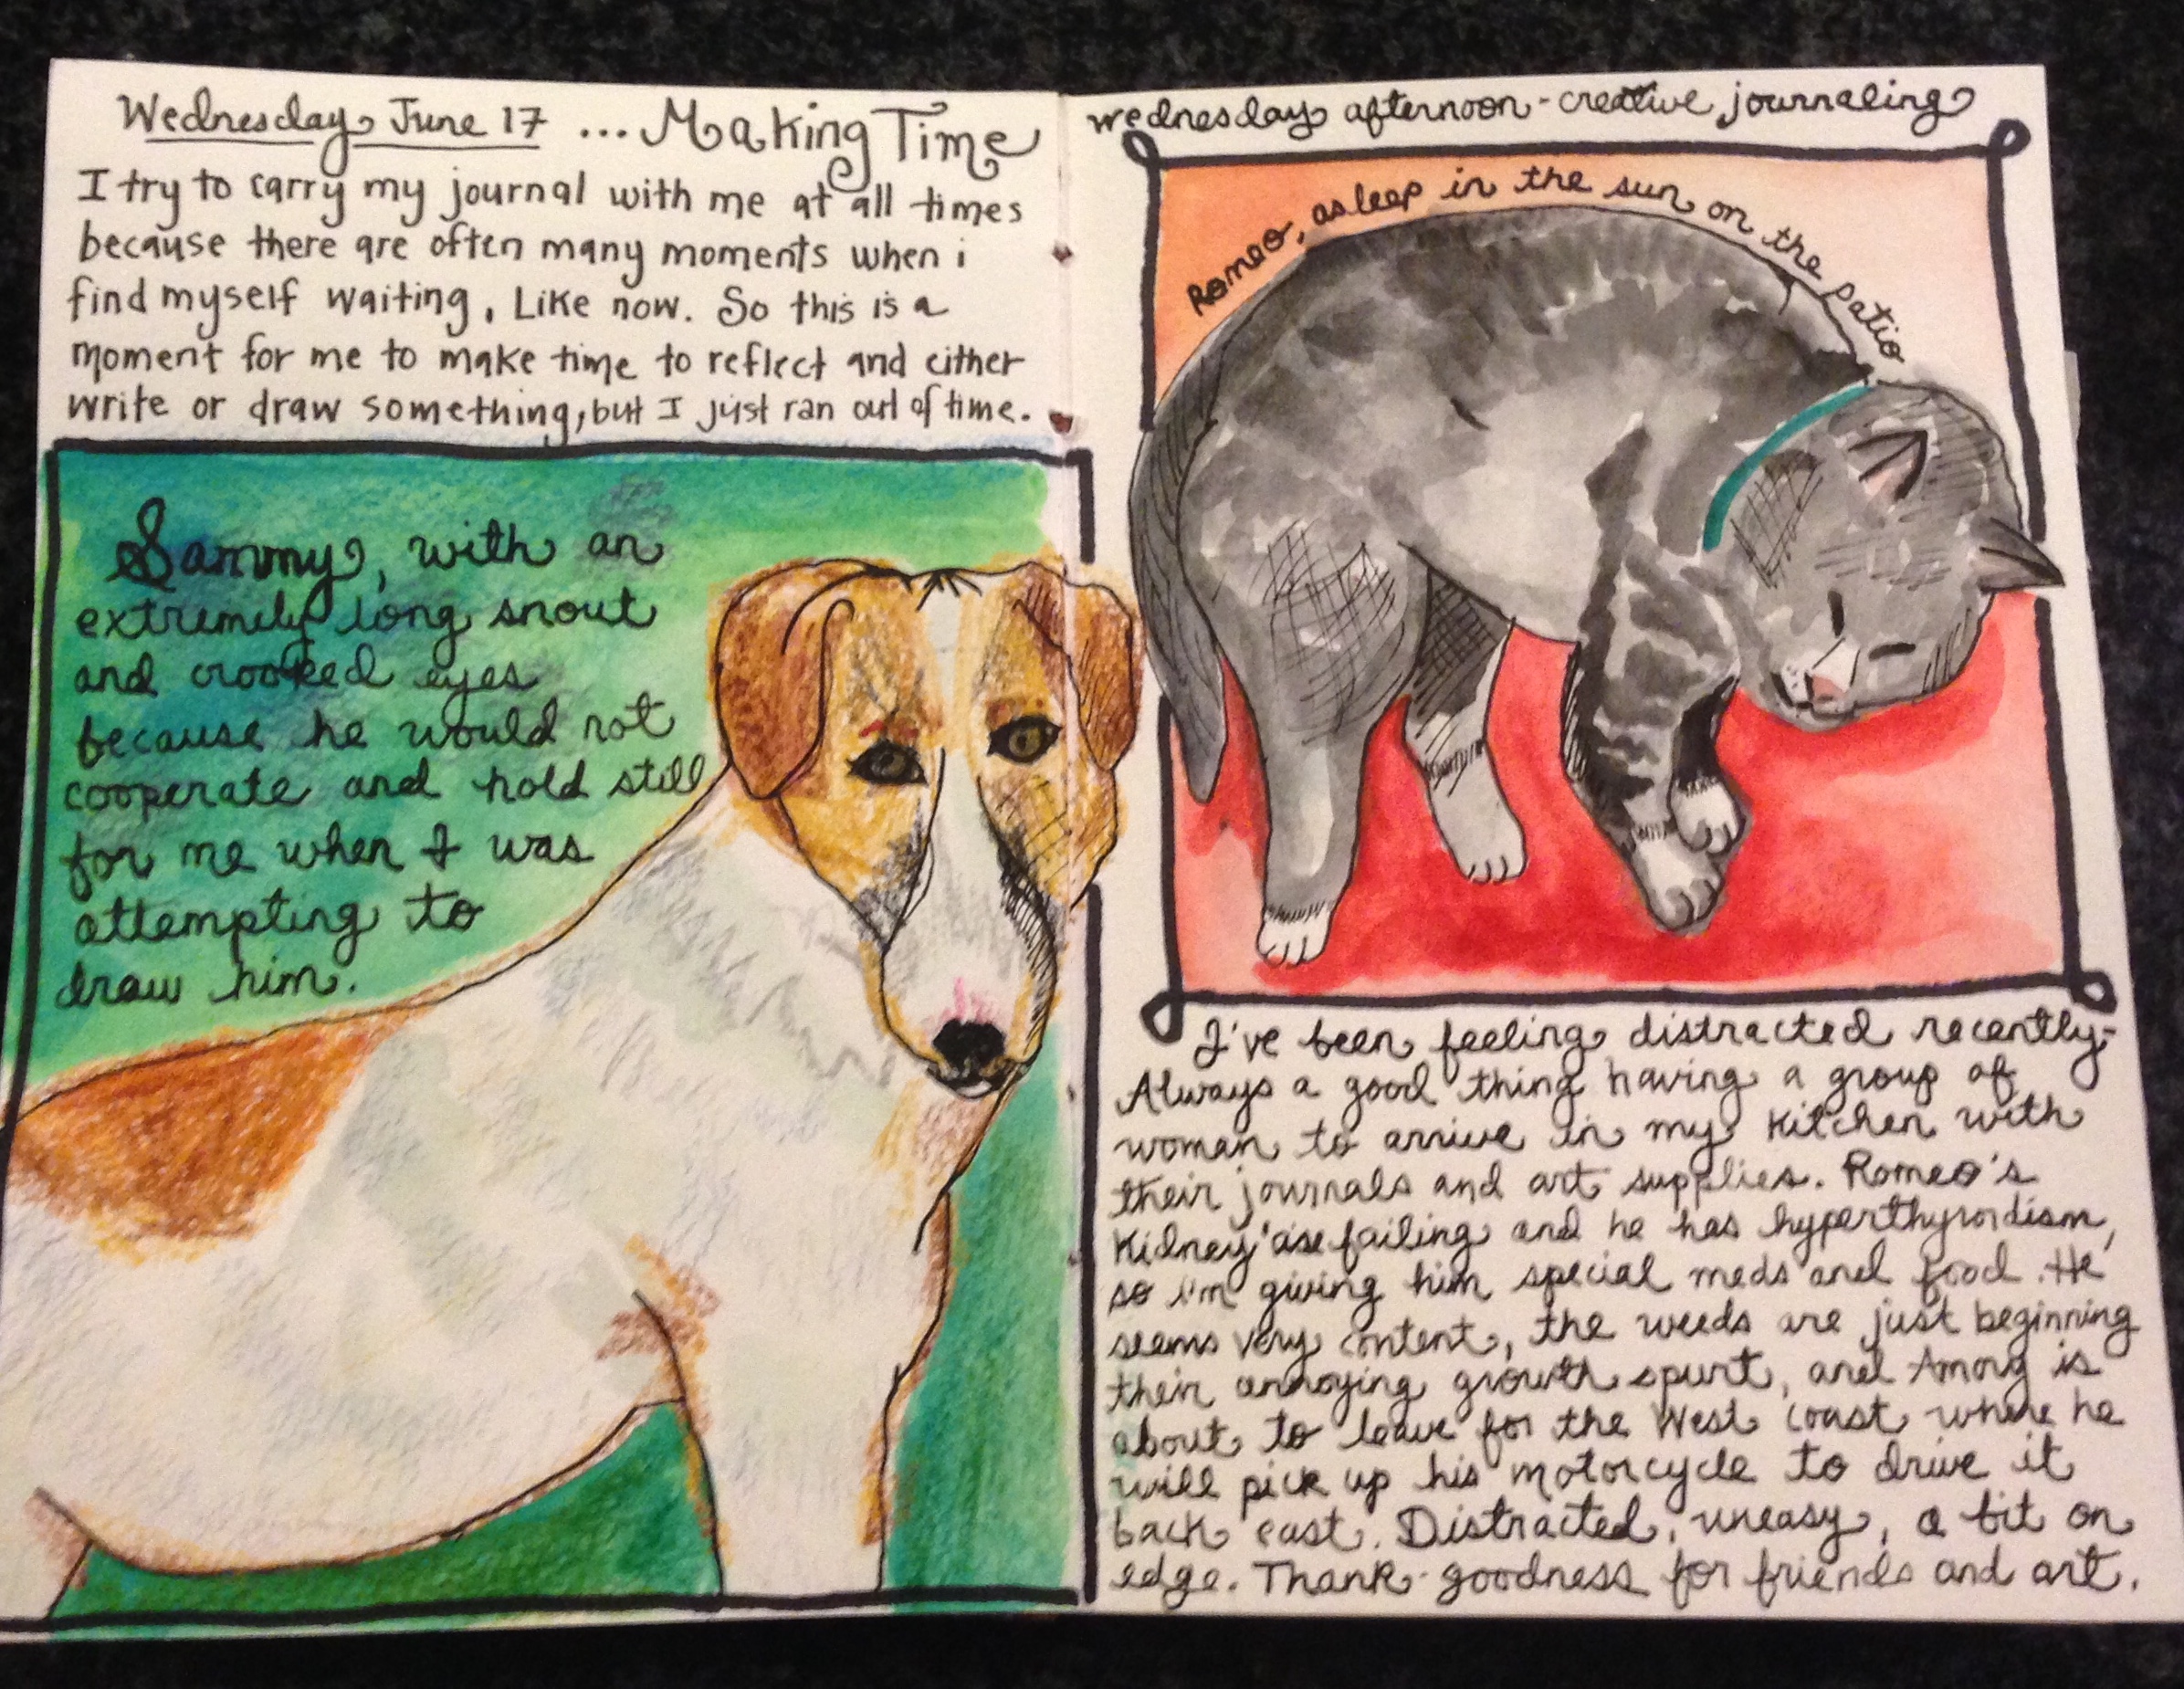 Wednesday, June 17 ... Making Time
I try to carry my journal with me at all times
because there are often many moments when i
find myself waiting. Like now. So this is a
moment for me to make time to reflect and either
write or draw something, but I just ran out of time.
Sammy, with an
extremely long snout
and crooked eyes
because he would not
cooperate and hold still
for me when I was
attempting to
draw him.
wednesday afternoon - creative journaling
Romeo, asleep in the sun on the patio
I've been feeling distracted recently-
Always a good thing having a group of
woman to arrive in my kitchen with
their journals and art supplies. Romeo's
Kidney's failing and he has hyperthyroidism,
so i'm giving him special meds and food. He
seems very content, the weeds are just beginning
their annoying growth spurt, and is
about to leave for the West coast where he
will pick up his motorcycle to drive it
back east. Distracted, uneasy, a bit on
edge. Thank goodness for friends and art.